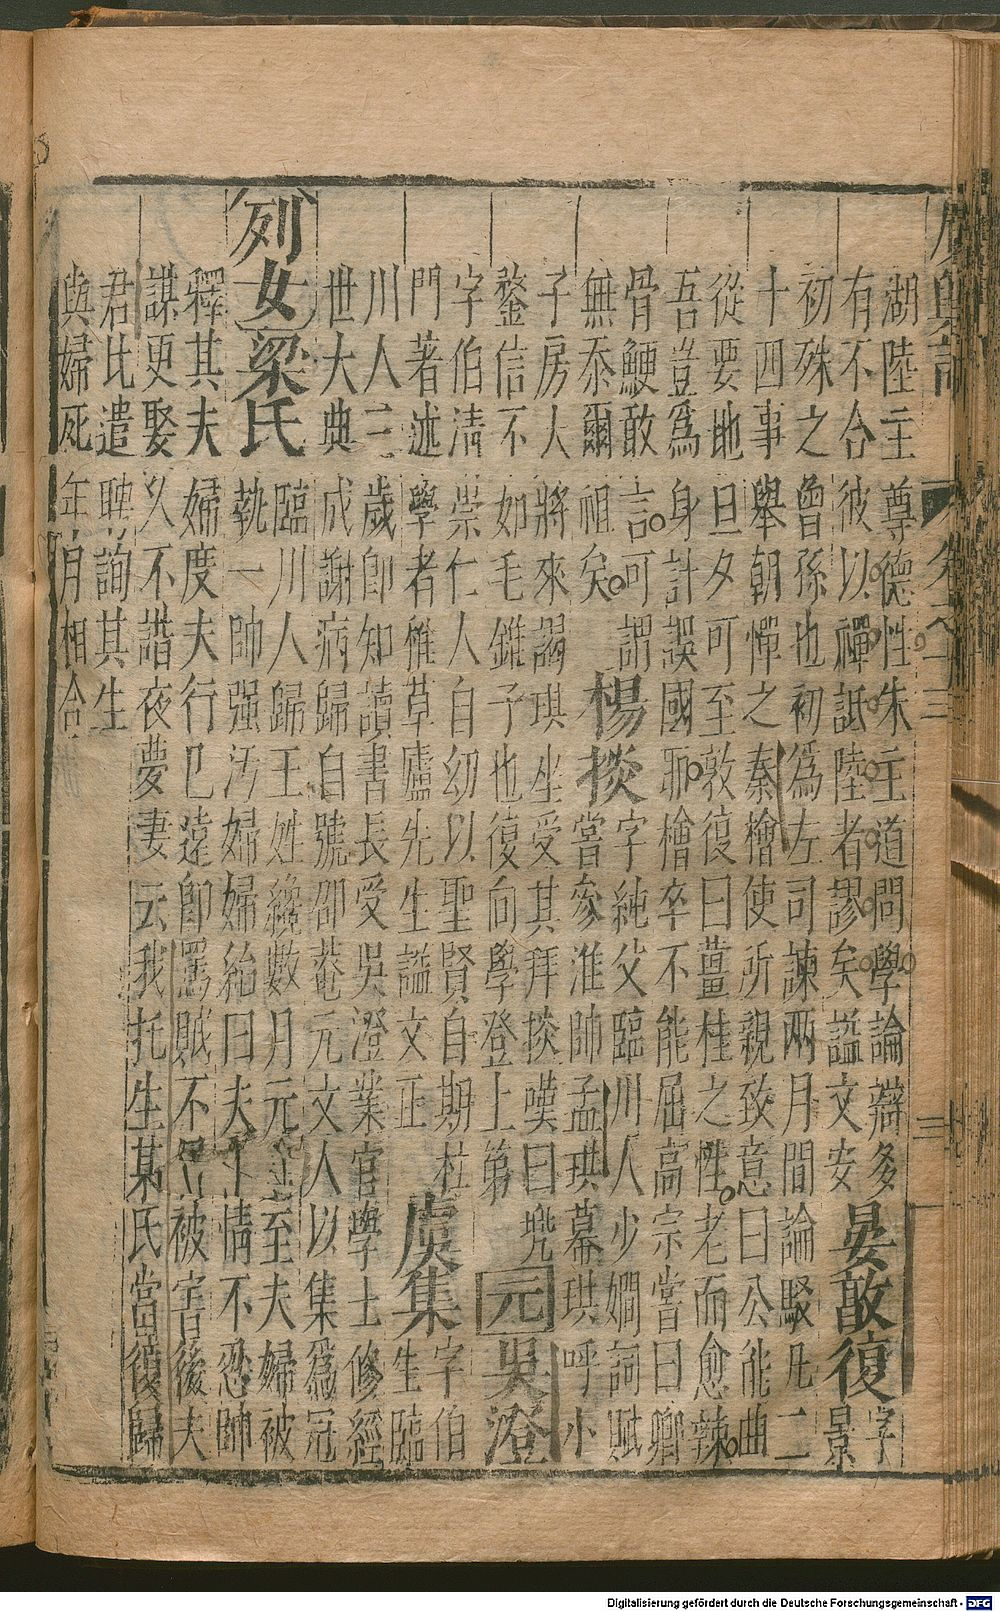 廣輿記 卷之十三 三
湖陸主尊德性朱主道問學論辯多
有不合彼以禪詆陸者謬矣謚文安
晏敦復
字
景
初殊之曾孫也初為左司諫兩月間論駁凡二
十四事舉朝憚之秦檜使所親致意曰公能曲
從要地旦夕可至敦復曰薑桂之性老而愈辣
吾豈為身計誤國耶檜卒不能屈高宗嘗曰卿
骨鯁敢言可謂
無忝爾祖矣
楊掞
字純父臨川人少嫻詞賦
嘗參淮帥孟珙幕珙呼小
子房人將來謁珙坐受其拜掞嘆曰兠
鍪信不如毛錐子也復向學登上第
元
吳澄
字伯清崇仁人自幼以聖賢自期杜
門著述學者稱草廬先生謚文正
虞集
字伯
生臨
川人三歲即知讀書長受吳澄業官學士修經
世大典成謝病歸自號邵菴元文人以集為冠
列女
梁氏
臨川人歸王姓纔數月元兵至夫婦被
執一帥強汚婦婦紿曰夫在情不忍帥
釋其夫婦度夫行已遠即罵賊不辱被害後夫
謀更娶久不諧夜夢妻云我托生某氏當復歸
君比遣聘詢其生
與婦死年月相合
Digitalisierung gefördert durch die Deutsche Forschungsgemeinschaft - DFG